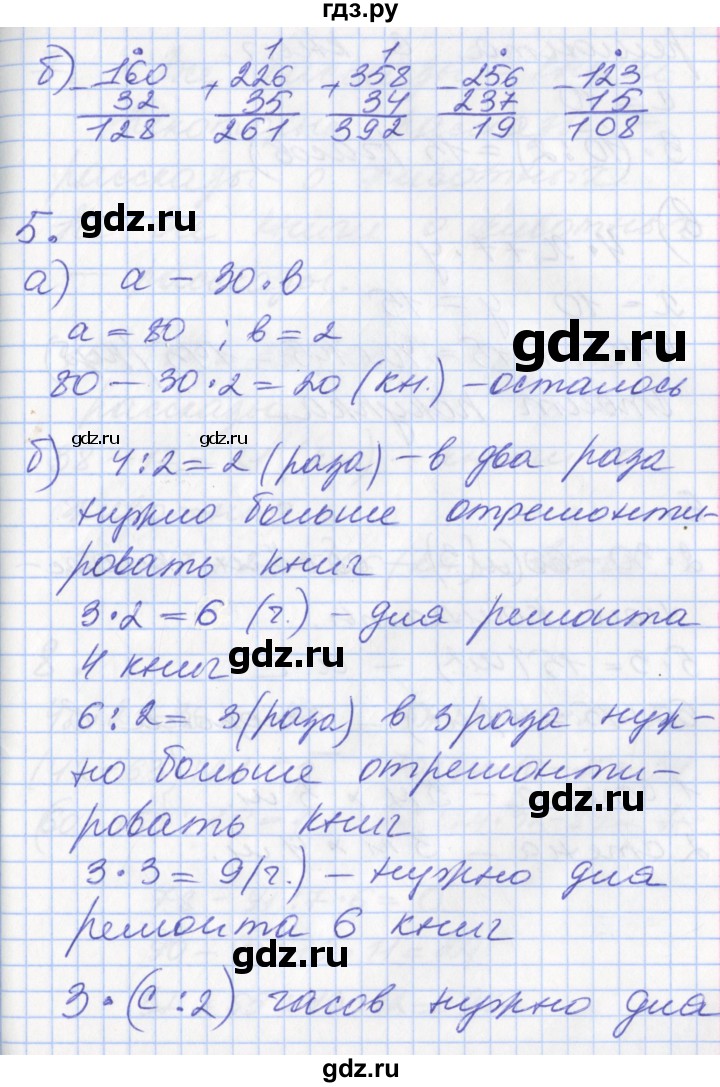 гдз.ру
б) -160 +226 +358 -256 -123
32 35 34 237 15
128 261 392 19 108
gdz.ru
5.
а) а - 30·в
а = 80 ; в = 2
gdz.ru
80 - 30·2 = 20 (кн.) - осталось
gdz.ru gdz.ru
б) 4:2 = 2 (раза) - в два раза
нужно больше отремонти-
ровать книг
3·2 = 6 (г.) - для ремонта
4 книг
gdz.ru
6:2 = 3 (раза) в 3 раза нуж-
но больше отремонти-
gdz.ru
ровать книг
3·3 = 9 (г.) - нужно для
ремонта 6 книг
gdz.ru
3·(с:2) часов нужно для
gdz.ru